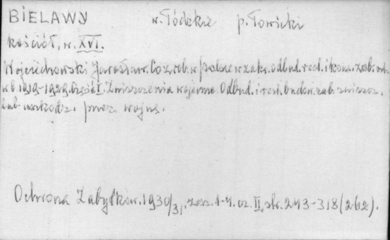 BIELAWY w. Łódzkie p. Łowicki
kościół, w. XVI.
Wojciechowski Jarosław. Co zrob. w Polsce w zakr. odbud. rest. i kons. zab. arch.
w l. 1919-1929. Część I. Zniszczenia wojenne. Odbud. i rest. budow. zab. zniszcz.
lub uszkodz. przez wojnę.
Ochrona Zabytków. 1930/31, zesz. 1-4. cz. II, str. 243-318 (262).